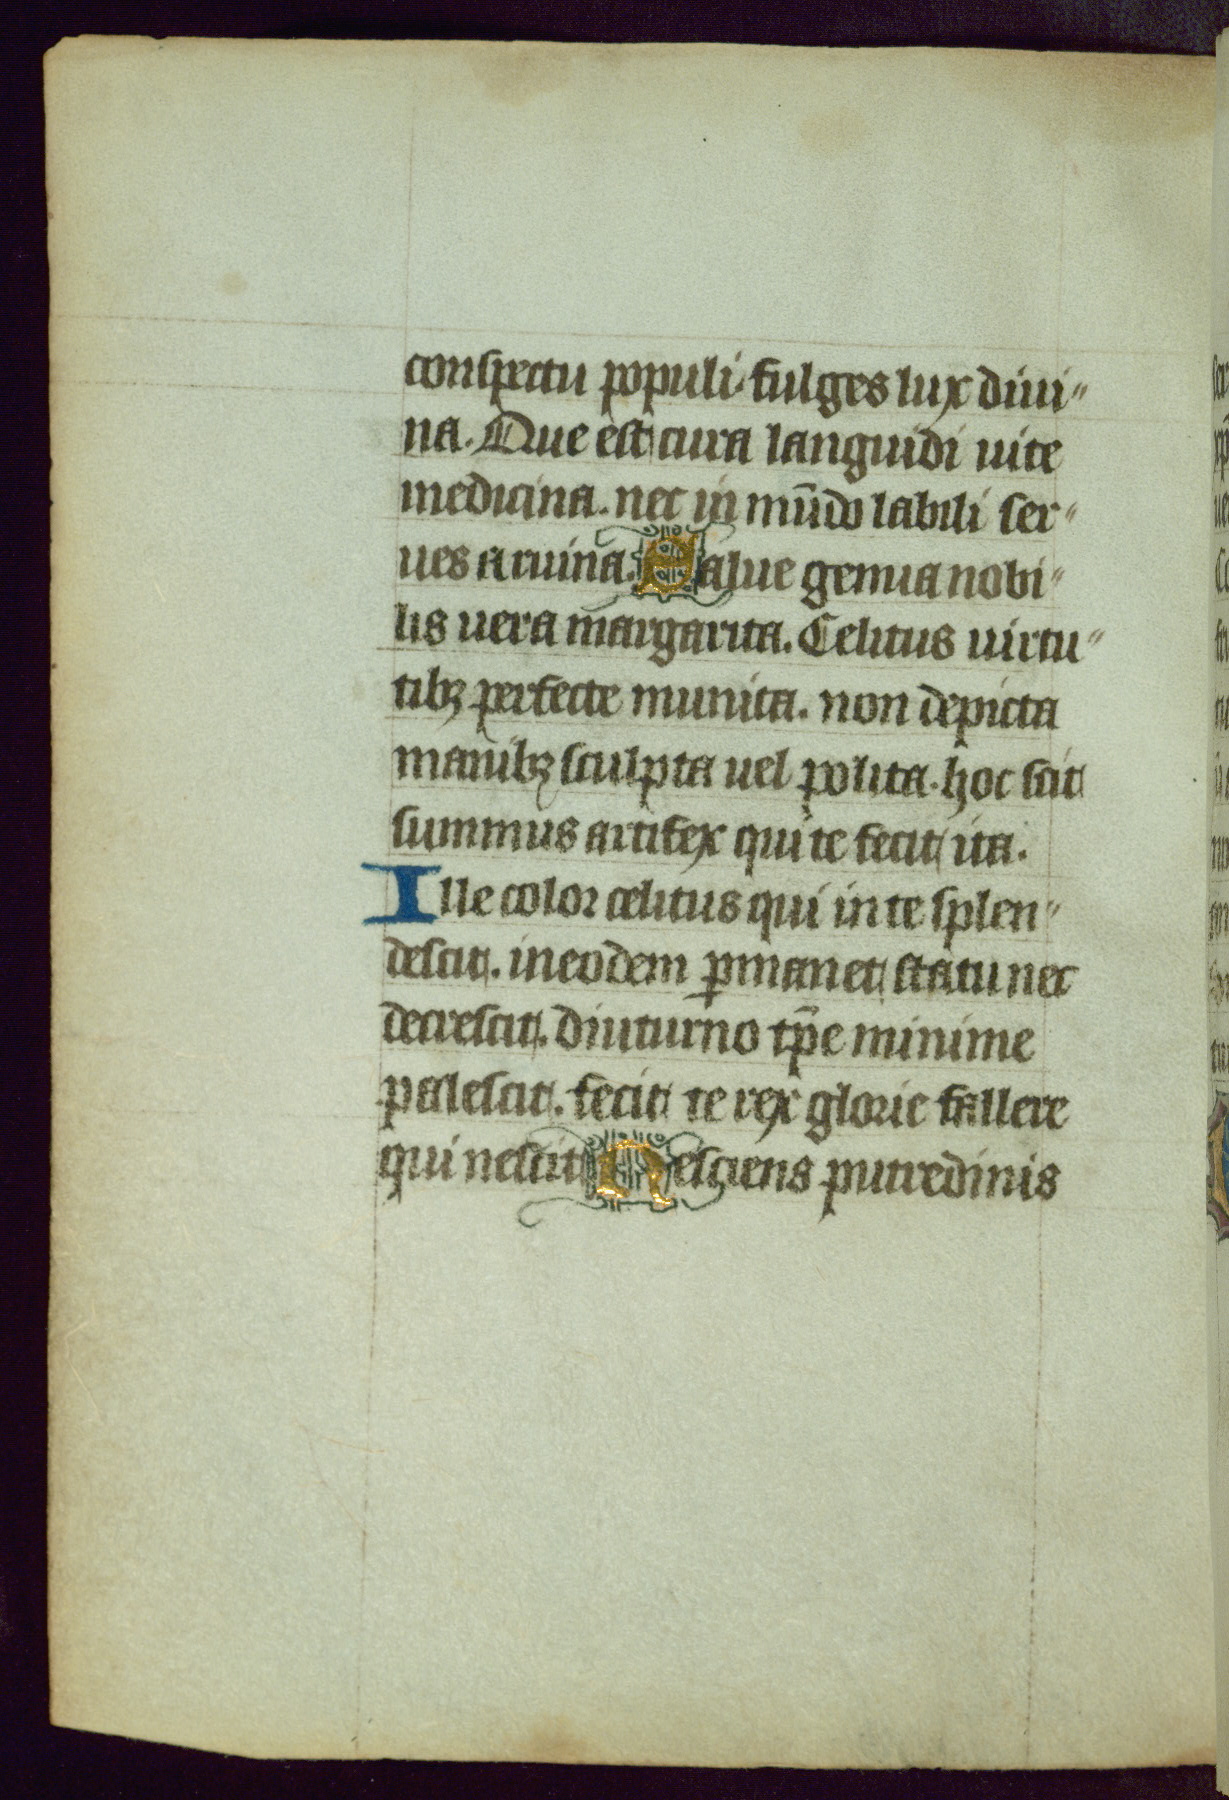 conspectu populi. fulges lux diui-
na. Que est cura languidi uite
medicina. nec in mūdo labili ser-
ues a ruina. Salue gemma nobi-
lis uera margarita. Celitus uirtu-
tibꝫ perfecte munita. non depicta
manibꝫ sculpta uel polita. hoc scit
summus artifex qui te fecit ita.
Ille color celitus qui in te splen-
descit. in eodem ꝑmanet statu nec
decrescit. diuturno tp̄e minime
palescit. fecit te rex glorie fallere
qui nescit Nesciens putredinis